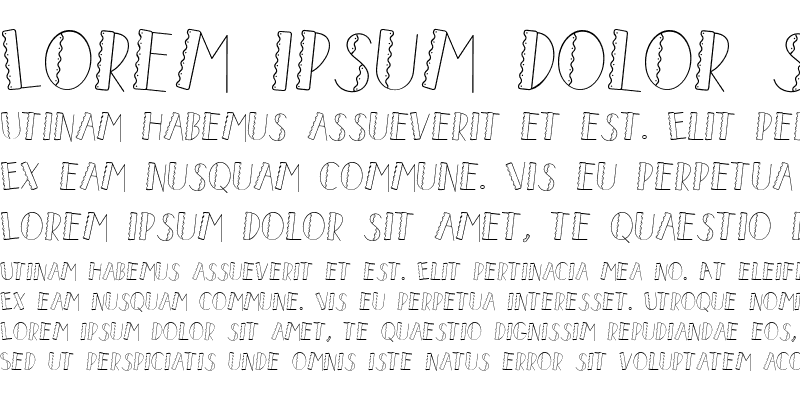 LOREM IPSUM DOLOR S
UTINAM HABEMUS ASSUEVERIT ET EST. ELIT PER
EX EAM NUSQUAM COMMUNE. VIS EU PERPETUA
LOREM IPSUM DOLOR SIT AMET, TE QUAESTIO D
UTINAM HABEMUS ASSUEVERIT ET EST. ELIT PERTINACIA MEA NO. AT ELEIFE
EX EAM NUSQUAM COMMUNE. VIS EU PERPETUA INTERESSET. UTROQUE NOMI
LOREM IPSUM DOLOR SIT AMET, TE QUAESTIO DIGNISSIM REPUDIANDAE EOS,
SED UT PERSPICIATIS UNDE OMNIS ISTE NATUS ERROR SIT VOLUPTATEM ACC